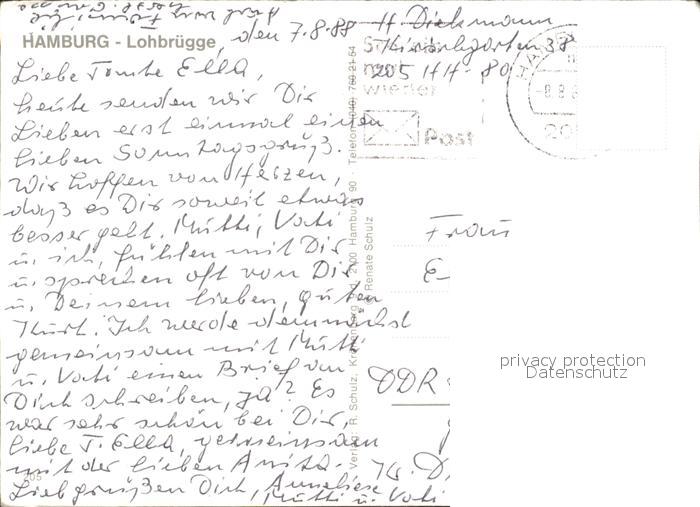 HAMBURG - Lohbrügge, den 7.8.88
H. Diekmann
205 HH-80
Liebe Tante Ella,
heute senden wir Dir
Lieben erst einmal einen
lieben Sonntagsgruß.
Wir hoffen von Herzen,
daß es Dir soweit etwas
besser geht. Mutti, Vati
u. ich, fühlen mit Dir
u. sprechen oft von Dir
u. Deinem lieben, guten
Kurt. Ich werde demnächst
gemeinsam mit Mutti
u. Vati einen Brief an
Dich schreiben, ja? Es
war sehr schön bei Dir,
liebe T. Ella, gemeinsam
mit der lieben Anita.
Lieb grüßen Dich, Anneliese
Mutti u. Vati
wieder
Post
-8.8.
Frau
E
DDR
Verlag: R. Schulz, 2100 Hamburg 90 - Telefon (040)
Renate Schulz
privacy protection
Datenschutz